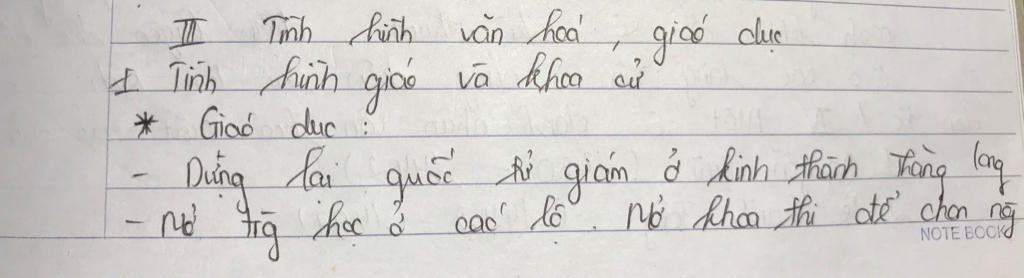 III Tình hình văn hoá, giáo dục
1 Tình hình giáo và khoa cử
* Giáo dục:
- Dựng lại quốc tử giám ở kinh thành Thăng long
- Mở trg học ở các lộ. Mở khoa thi để chọn ng
NOTE BOOK